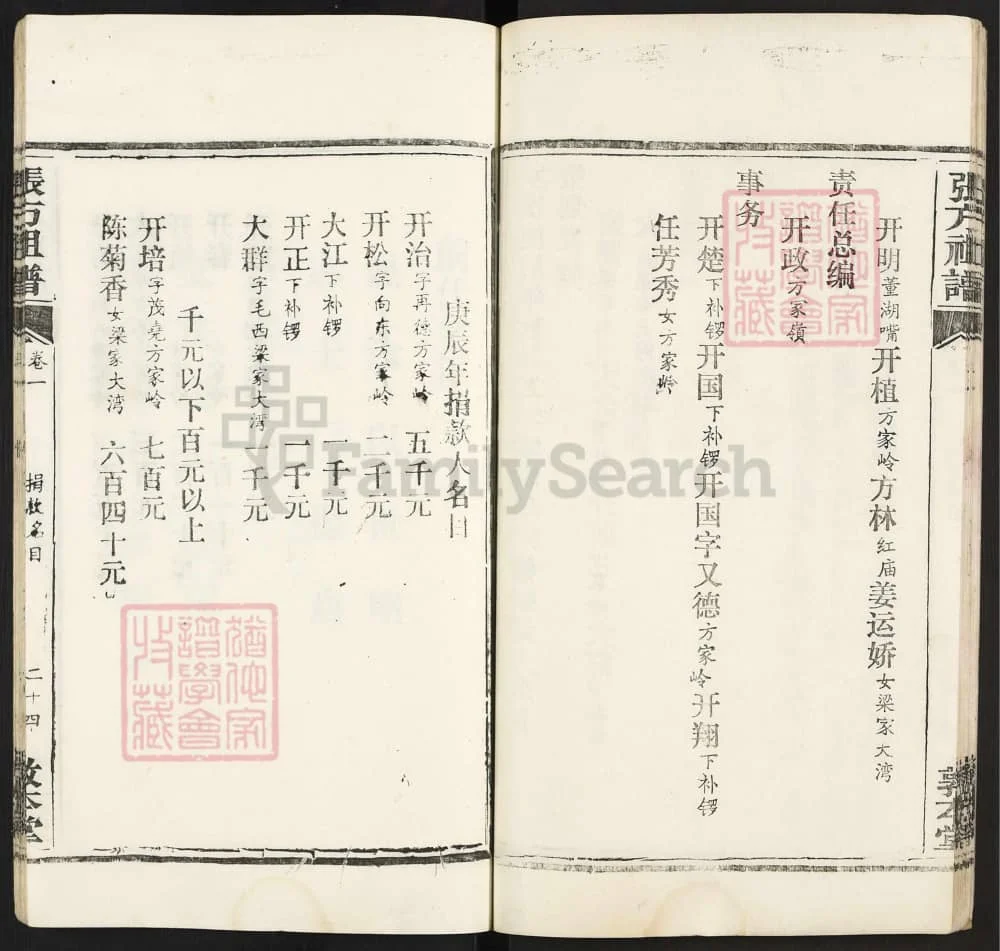 开明董湖嘴开植方家岭方林红庙姜运娇女梁家大湾
责任总编
开政方家嶺
事务
开楚下补锣开国下补锣开国字又德方家岭开翔下补锣
任芳秀女方家岭
庚辰年捐款人名目
开治字再德方家岭 五千元
开松字向东方家岭 二千元
大江下补锣 一千元
开正下补锣 一千元
大群字毛西梁家大湾 一千元
千元以下百元以上
开培字茂尧方家岭 七百元
陈菊香女梁家大湾 六百四十元
卷一
捐款名目
二十四
FamilySearch